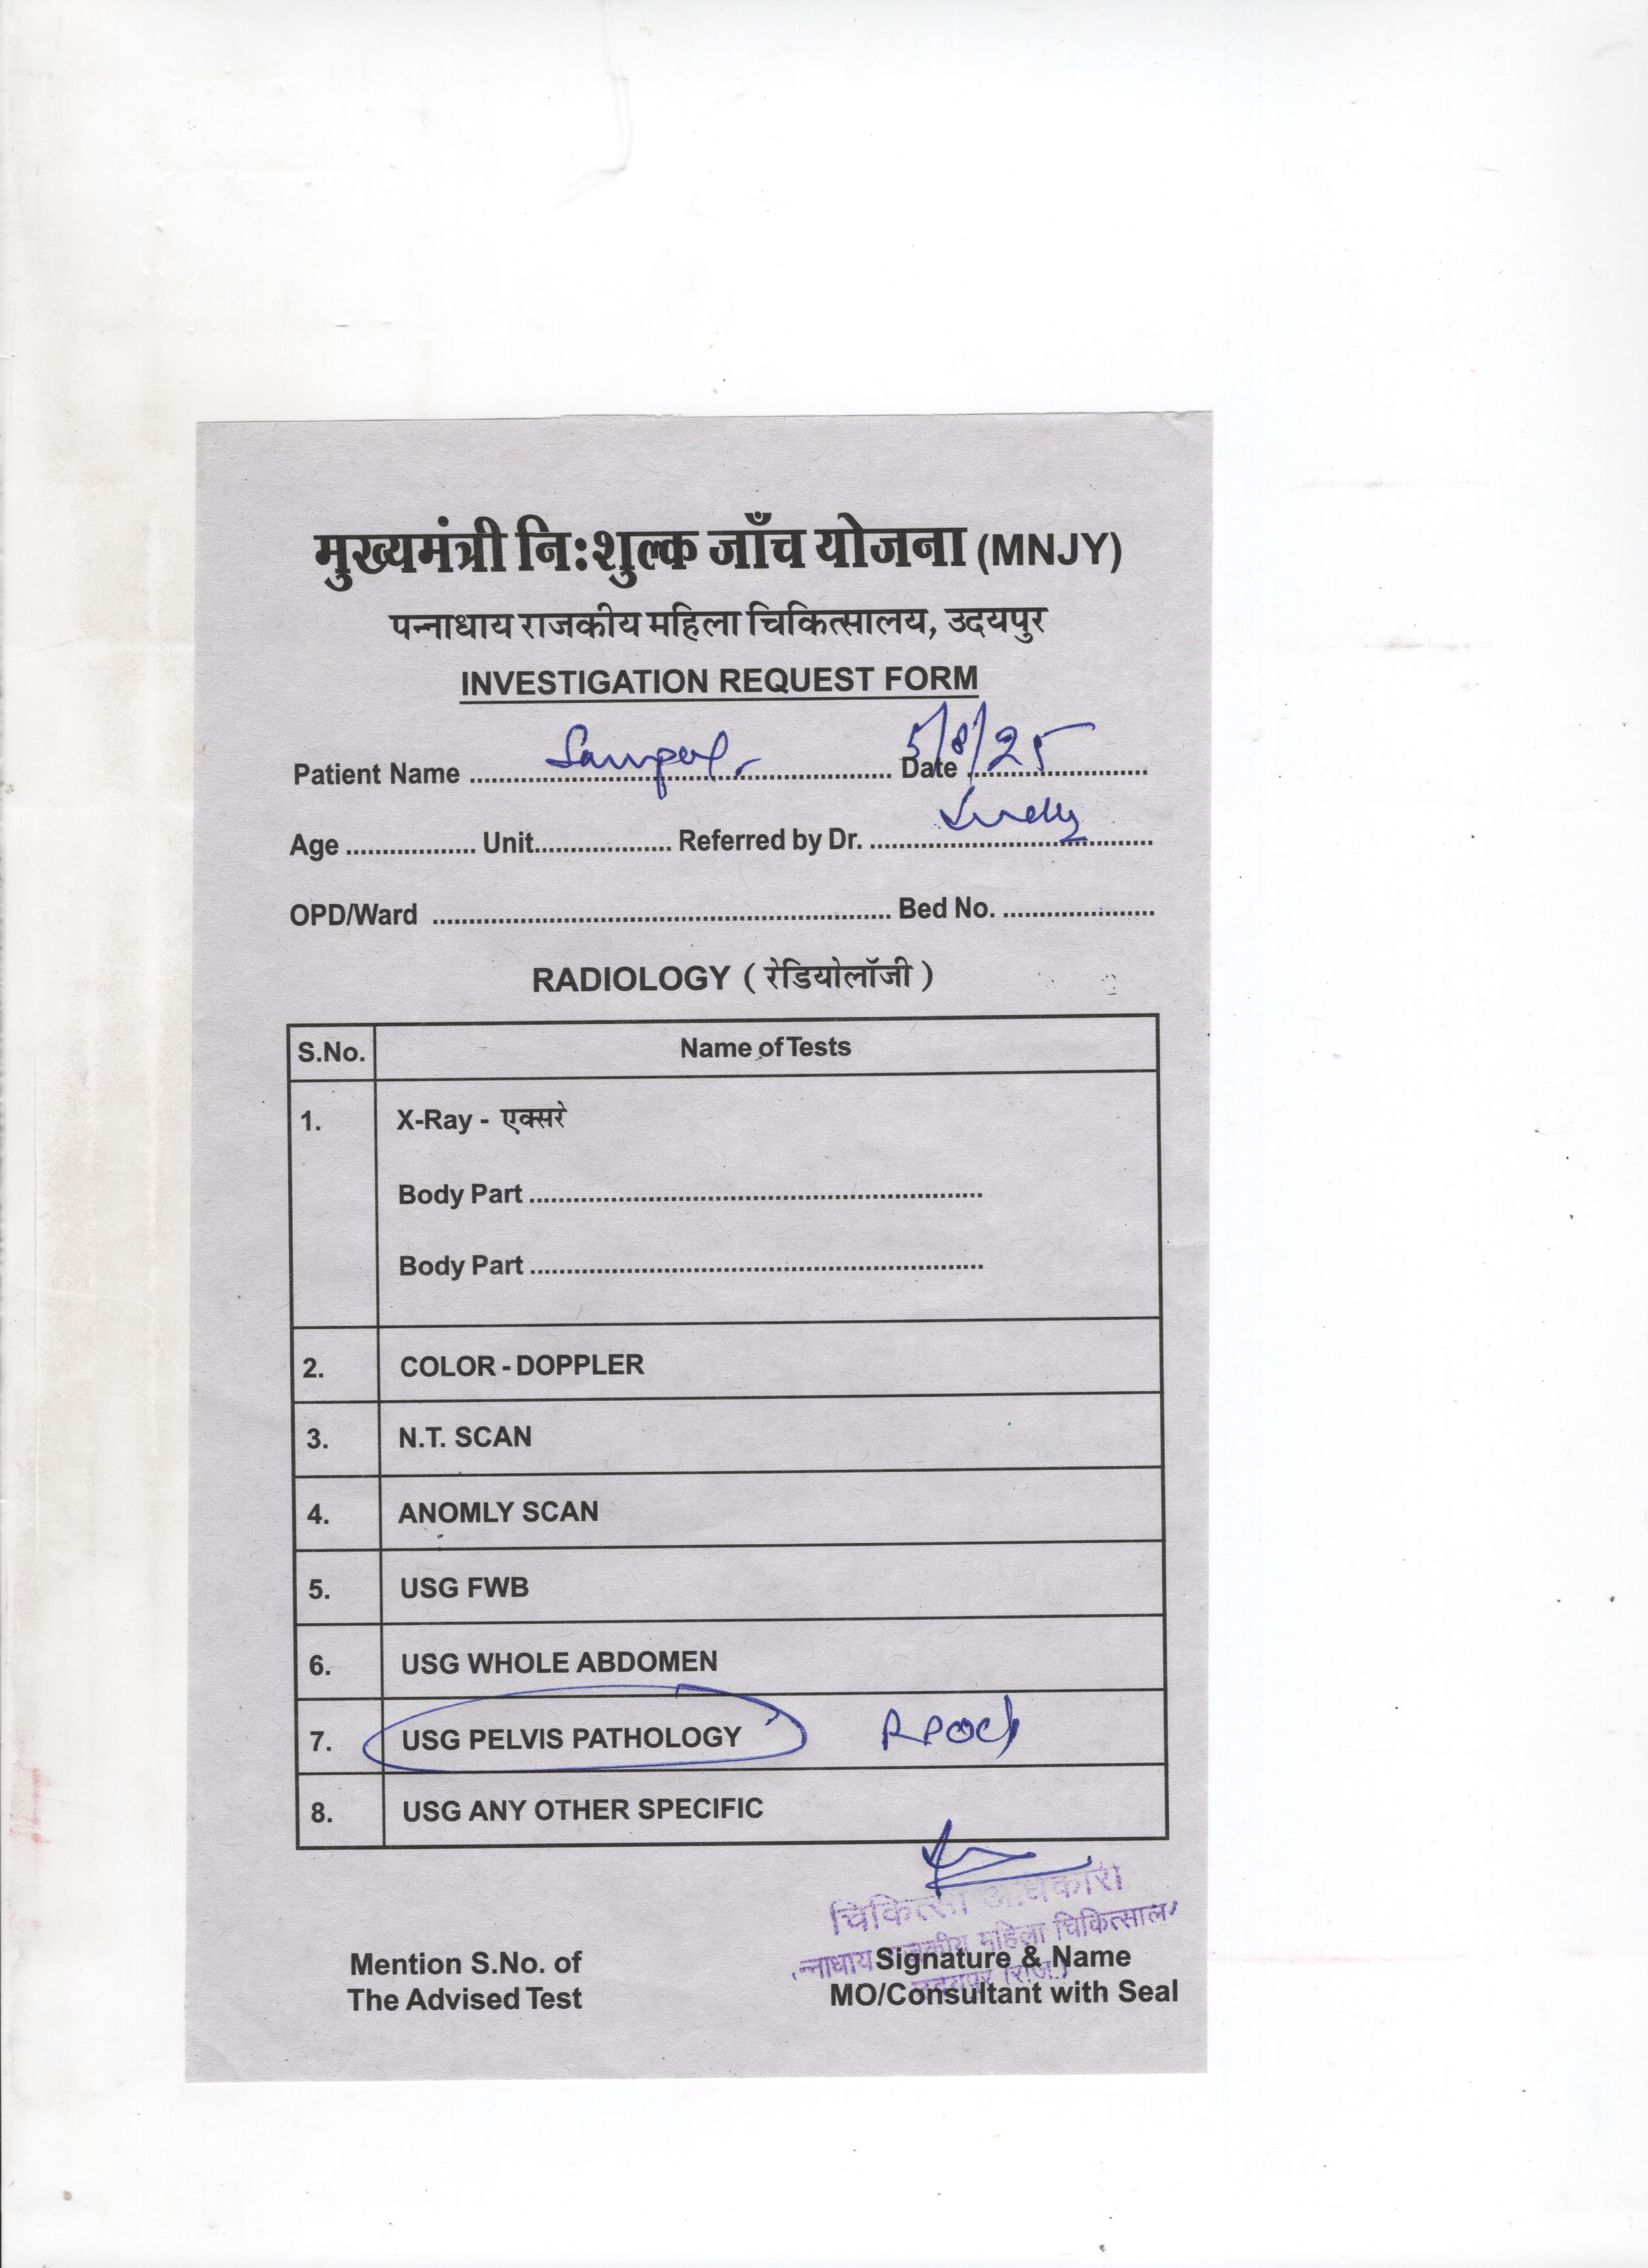 मुख्यमंत्री निःशुल्क जाँच योजना (MNJY)
पन्नाधाय राजकीय महिला चिकित्सालय, उदयपुर
INVESTIGATION REQUEST FORM
Patient Name .......... Date 5/8/25
Age .......... Unit.......... Referred by Dr. ..........
OPD/Ward .......... Bed No. ..........
RADIOLOGY ( रेडियोलॉजी )
S.No. Name of Tests
1. X-Ray - एक्सरे
Body Part ..........
Body Part ..........
2. COLOR - DOPPLER
3. N.T. SCAN
4. ANOMLY SCAN
5. USG FWB
6. USG WHOLE ABDOMEN
7. USG PELVIS PATHOLOGY RPOC
8. USG ANY OTHER SPECIFIC
चिकित्सा अधिकारी
न्नाधाय राजकीय महिला चिकित्साल
उदयपुर (राज.)
Mention S.No. of Signature & Name
The Advised Test MO/Consultant with Seal